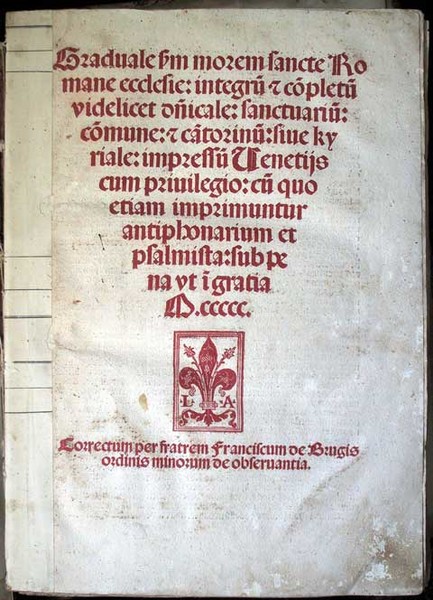 Graduale ẜm morem sancte Ro
mane ecclesie: integrū ⁊ cōpletū
videlicet dn̄icale: sanctuariū:
cōmune: ⁊ cātorinū: siue ky
riale: impressū Uenetijs
cum priuilegio: cū quo
etiam imprimuntur
antiphonarium et
psalmista: sub pe
na vt ī gratia
M.ccccc.
L A
Correctum per fratrem Franciscum de Brugis
ordinis minorum de obseruantia.